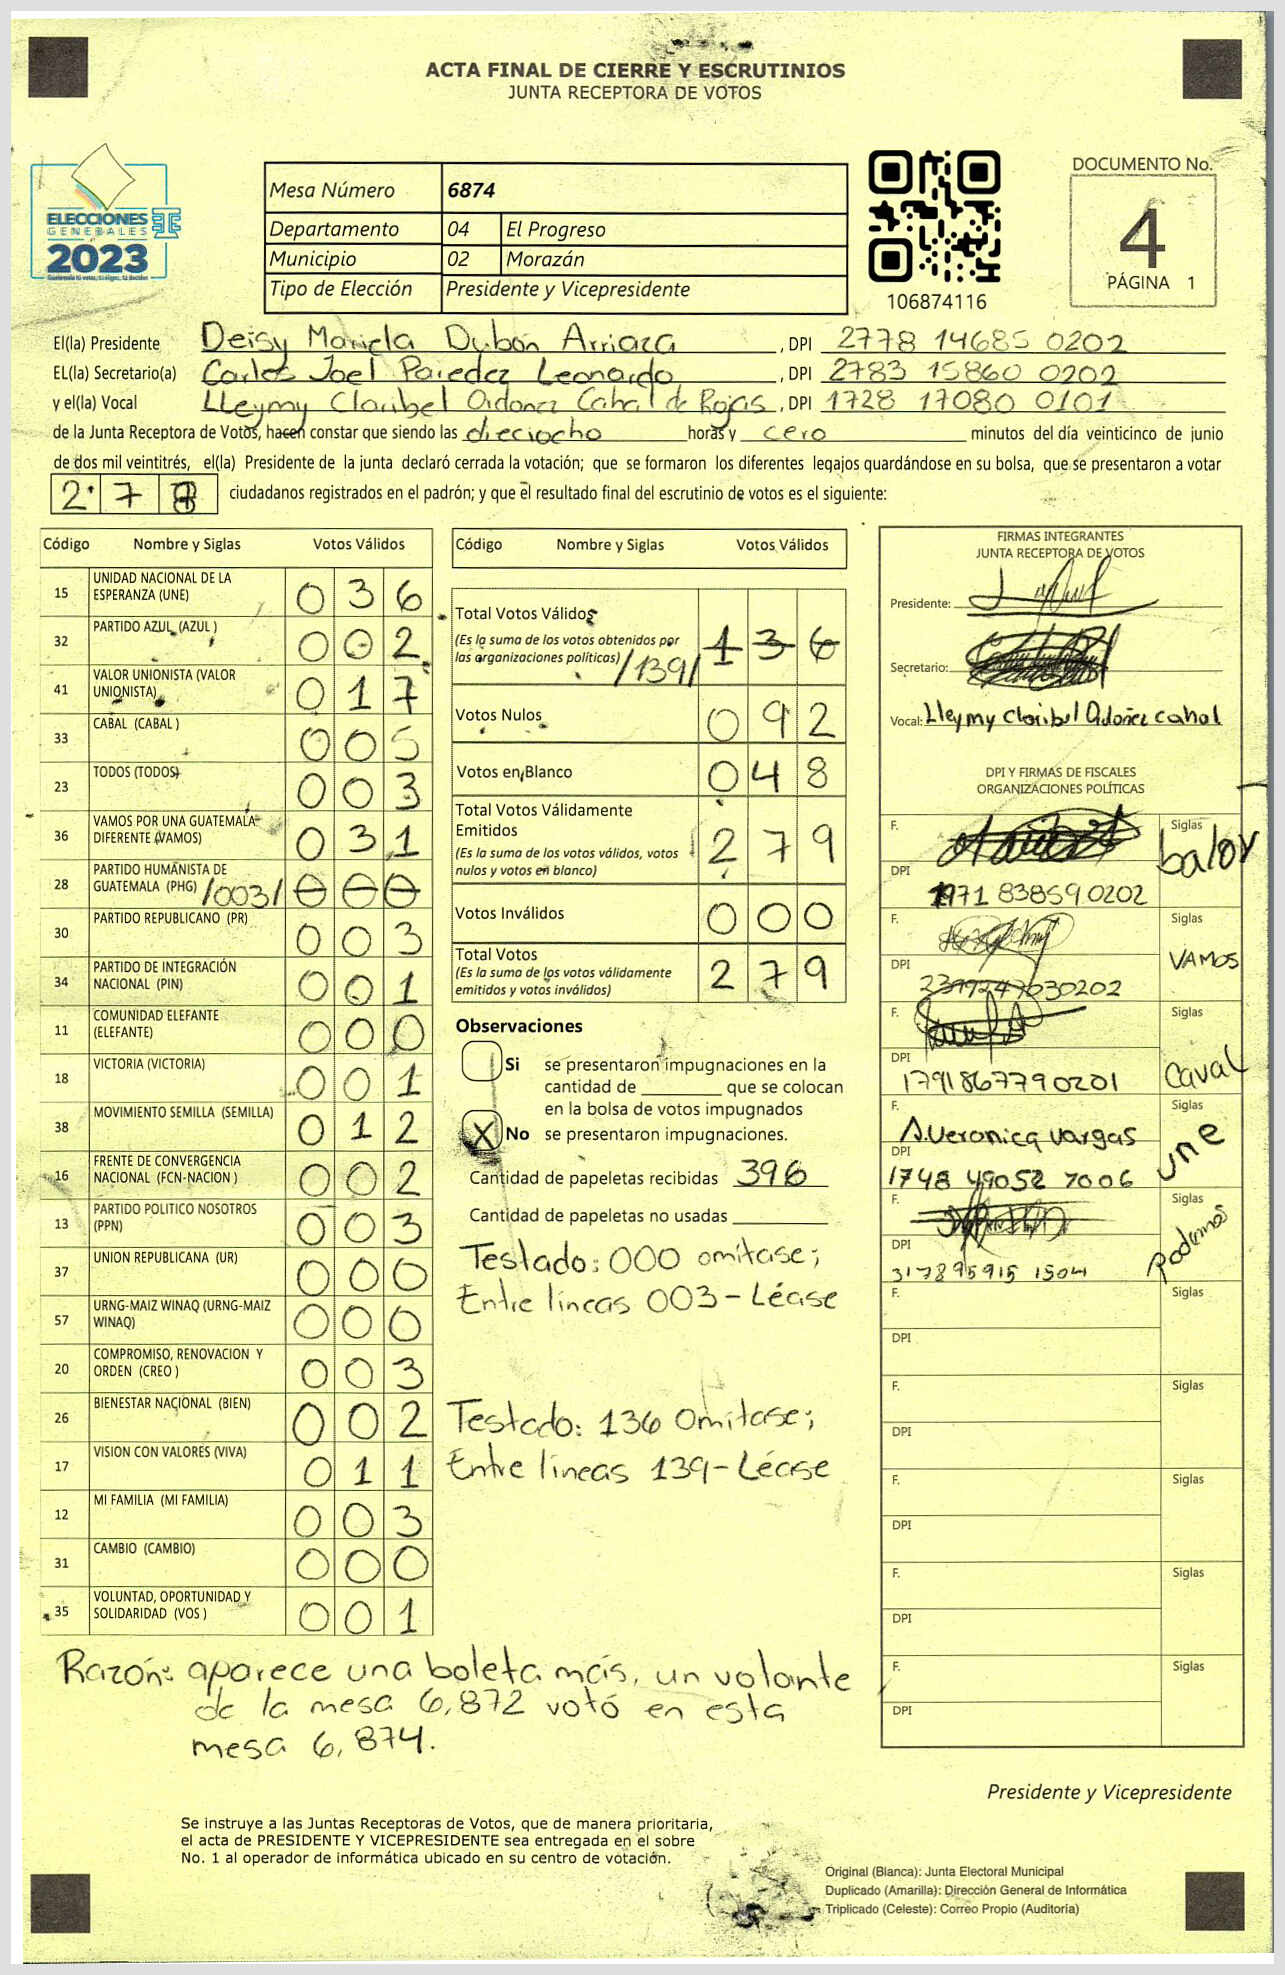 ACTA FINAL DE CIERRE Y ESCRUTINIOS
JUNTA RECEPTORA DE VOTOS
ELECCIONES
GENERALES
2023
Mesa Número 6874
Departamento 04 El Progreso
Municipio 02 Morazán
Tipo de Elección Presidente y Vicepresidente
106874116
DOCUMENTO No.
4
PÁGINA 1
El(la) Presidente Deisy Mariela Dubón Arriaza , DPI 2778 14685 0202
EL(la) Secretario(a) Carlos Joel Paredez Leonardo , DPI 2783 15860 0202
y el(la) Vocal Lleymy Claribel Ordoñez Cahal de Rojas , DPI 1728 17080 0101
de la Junta Receptora de Votos, hacen constar que siendo las dieciocho horas y cero minutos del día veinticinco de junio
de dos mil veintitrés, el(la) Presidente de la junta declaró cerrada la votación; que se formaron los diferentes legajos guardándose en su bolsa, que se presentaron a votar
2 7 8 ciudadanos registrados en el padrón; y que el resultado final del escrutinio de votos es el siguiente:
Código Nombre y Siglas Votos Válidos
15 UNIDAD NACIONAL DE LA ESPERANZA (UNE) 0 3 6
32 PARTIDO AZUL (AZUL ) 0 0 2
41 VALOR UNIONISTA (VALOR UNIONISTA) 0 1 7
33 CABAL (CABAL ) 0 0 5
23 TODOS (TODOS) 0 0 3
36 VAMOS POR UNA GUATEMALA DIFERENTE (VAMOS) 0 3 1
28 PARTIDO HUMANISTA DE GUATEMALA (PHG) /003/ 0 0 0
30 PARTIDO REPUBLICANO (PR) 0 0 3
34 PARTIDO DE INTEGRACIÓN NACIONAL (PIN) 0 0 1
11 COMUNIDAD ELEFANTE (ELEFANTE) 0 0 0
18 VICTORIA (VICTORIA) 0 0 1
38 MOVIMIENTO SEMILLA (SEMILLA) 0 1 2
16 FRENTE DE CONVERGENCIA NACIONAL (FCN-NACION ) 0 0 2
13 PARTIDO POLITICO NOSOTROS (PPN) 0 0 3
37 UNION REPUBLICANA (UR) 0 0 0
57 URNG-MAIZ WINAQ (URNG-MAIZ WINAQ) 0 0 0
20 COMPROMISO, RENOVACION Y ORDEN (CREO ) 0 0 3
26 BIENESTAR NACIONAL (BIEN) 0 0 2
17 VISION CON VALORES (VIVA) 0 1 1
12 MI FAMILIA (MI FAMILIA) 0 0 3
31 CAMBIO (CAMBIO) 0 0 0
35 VOLUNTAD, OPORTUNIDAD Y SOLIDARIDAD (VOS ) 0 0 1
Código Nombre y Siglas Votos Válidos
Total Votos Válidos
(Es la suma de los votos obtenidos por
las organizaciones políticas) /139/ 1 3 6
Votos Nulos 0 9 2
Votos en Blanco 0 4 8
Total Votos Válidamente
Emitidos
(Es la suma de los votos válidos, votos
nulos y votos en blanco) 2 7 9
Votos Inválidos 0 0 0
Total Votos
(Es la suma de los votos válidamente
emitidos y votos inválidos) 2 7 9
Observaciones
Si se presentaron impugnaciones en la
cantidad de ________ que se colocan
en la bolsa de votos impugnados
X No se presentaron impugnaciones.
Cantidad de papeletas recibidas 396
Cantidad de papeletas no usadas
Testado: 000 omitase;
Entre líneas 003-Léase
Testado: 136 Omitase;
Entre líneas 139-Léase
FIRMAS INTEGRANTES
JUNTA RECEPTORA DE VOTOS
Presidente:
Secretario:
Vocal: Lleymy Claribel Ordoñez Cahal
DPI Y FIRMAS DE FISCALES
ORGANIZACIONES POLÍTICAS
F. Siglas balor
DPI 1971 83859 0202
F. Siglas VAMOS
DPI
F. Siglas Caval
DPI 1791867790201
F. A. Veronica Vargas Siglas une
DPI 1748 49052 7006
F. Siglas Podemos
DPI 317895915 1504
F. Siglas
DPI
F. Siglas
DPI
F. Siglas
DPI
F. Siglas
DPI
F. Siglas
DPI
Razón: aparece una boleta más, un volante
de la mesa 6,872 votó en esta
mesa 6,874.
Presidente y Vicepresidente
Se instruye a las Juntas Receptoras de Votos, que de manera prioritaria,
el acta de PRESIDENTE Y VICEPRESIDENTE sea entregada en el sobre
No. 1 al operador de informática ubicado en su centro de votación.
Original (Blanca): Junta Electoral Municipal
Duplicado (Amarilla): Dirección General de Informática
Triplicado (Celeste): Correo Propio (Auditoría)